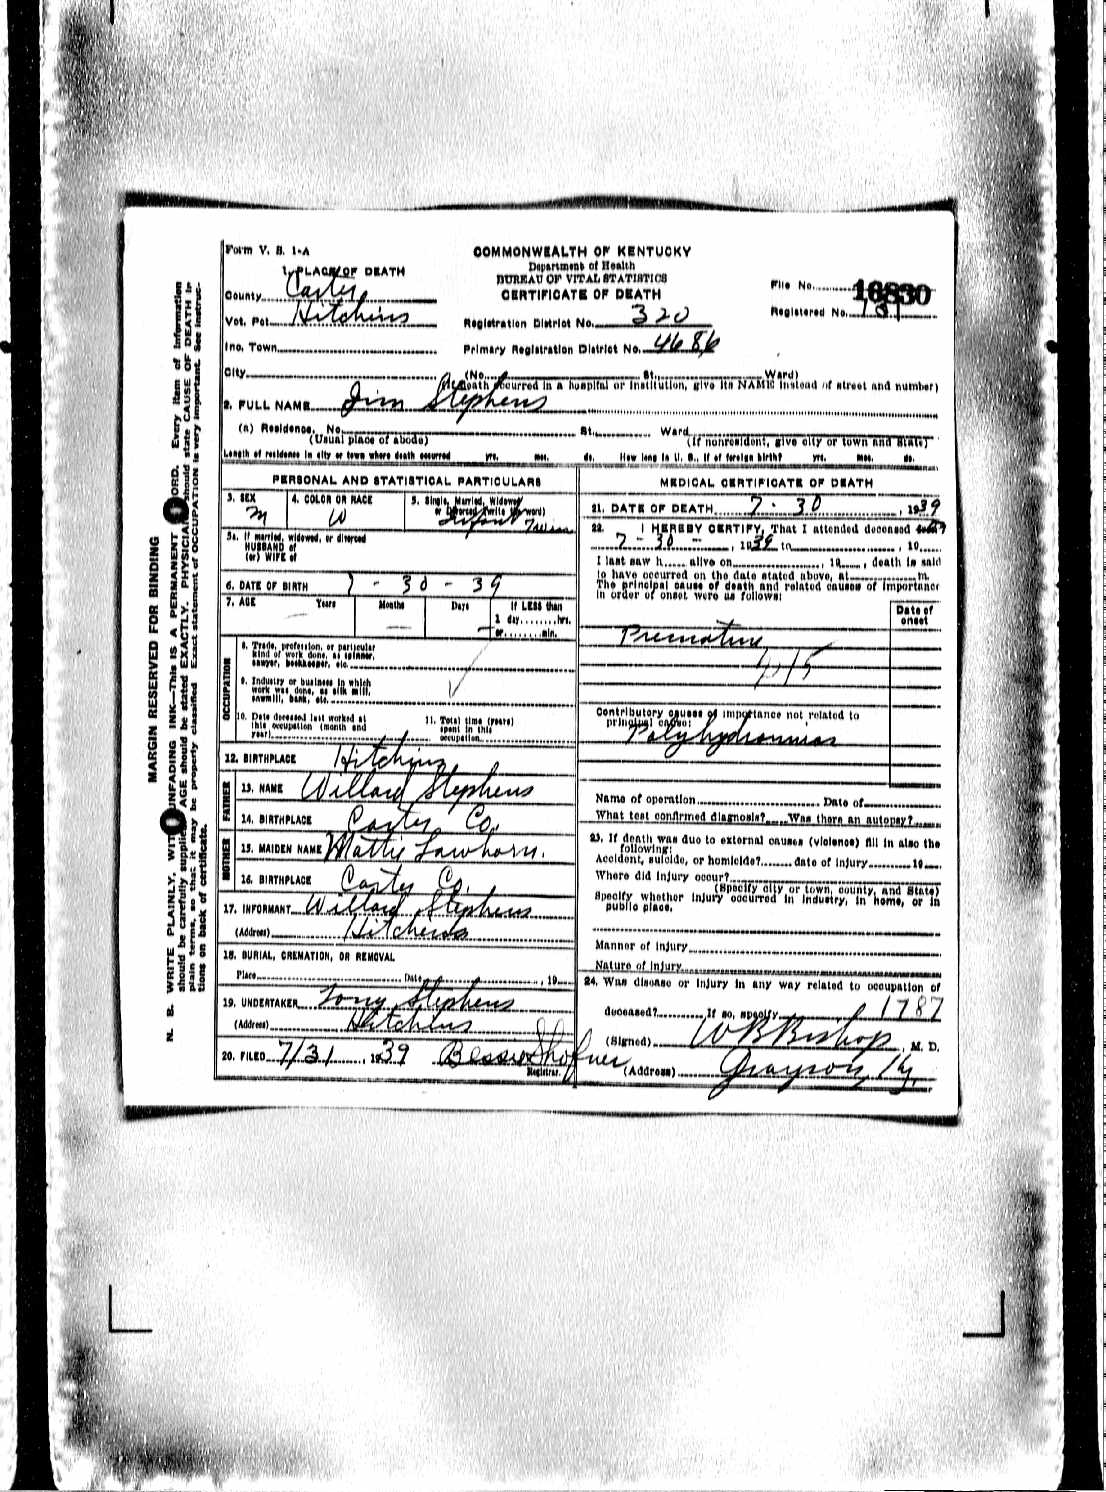 Form V. S. 1-A
COMMONWEALTH OF KENTUCKY
Department of Health
BUREAU OF VITAL STATISTICS
CERTIFICATE OF DEATH
1. PLACE OF DEATH
County Carter
Vot. Pct. Hitchins
Inc. Town
City
File No. 16830
Registered No.
Registration District No. 320
Primary Registration District No. 4686
(No. St., Ward)
(If death occurred in a hospital or institution, give its NAME instead of street and number)
2. FULL NAME Jim Stephens
(a) Residence. No. St., Ward
(Usual place of abode) (If nonresident, give city or town and State)
Length of residence in city or town where death occurred yrs. mos. ds. How long in U. S., if of foreign birth? yrs. mos. ds.
PERSONAL AND STATISTICAL PARTICULARS
3. SEX M
4. COLOR OR RACE W
5. Single, Married, Widowed
or Divorced (write the word)
Infant Twin
5a. If married, widowed, or divorced
HUSBAND of
(or) WIFE of
6. DATE OF BIRTH 7 - 30 - 39
7. AGE Years Months Days If LESS than
1 day, hrs.
or min.
OCCUPATION
8. Trade, profession, or particular
kind of work done, as spinner,
sawyer, bookkeeper, etc.
9. Industry or business in which
work was done, as silk mill,
sawmill, bank, etc.
10. Date deceased last worked at
this occupation (month and
year)
11. Total time (years)
spent in this
occupation
12. BIRTHPLACE Hitchins
FATHER
13. NAME Willard Stephens
14. BIRTHPLACE Carter Co.
MOTHER
15. MAIDEN NAME Mattie Lawhorn.
16. BIRTHPLACE Carter Co.
17. INFORMANT Willard Stephens
(Address) Hitchins
18. BURIAL, CREMATION, OR REMOVAL
Place Date , 19
19. UNDERTAKER Tony Stephens
(Address) Hitchins
20. FILED 7/31, 1939 Bessie Shofner
Registrar.
MEDICAL CERTIFICATE OF DEATH
21. DATE OF DEATH 7 - 30, 1939
22. I HEREBY CERTIFY, That I attended deceased
7 - 30 -, 1939 to , 19
I last saw h alive on , 19 , death is said
to have occurred on the date stated above, at m.
The principal cause of death and related causes of importance
in order of onset were as follows:
Date of
onset
Premature
Contributory causes of importance not related to
principal cause:
Polyhydramnios
Name of operation Date of
What test confirmed diagnosis? Was there an autopsy?
23. If death was due to external causes (violence) fill in also the
following:
Accident, suicide, or homicide? date of injury 19
Where did injury occur?
(Specify city or town, county, and State)
Specify whether injury occurred in industry, in home, or in
public place.
Manner of injury
Nature of injury
24. Was disease or injury in any way related to occupation of
deceased? If so, specify 1787
(Signed) W B Bishop, M. D.
(Address) Grayson, Ky.
MARGIN RESERVED FOR BINDING
N. B. WRITE PLAINLY, WITH UNFADING INK—THIS IS A PERMANENT RECORD. Every item of information
should be carefully supplied. AGE should be stated EXACTLY. PHYSICIANS should state CAUSE OF DEATH in
plain terms, so that it may be properly classified. Exact statement of OCCUPATION is very important. See instruc-
tions on back of certificate.